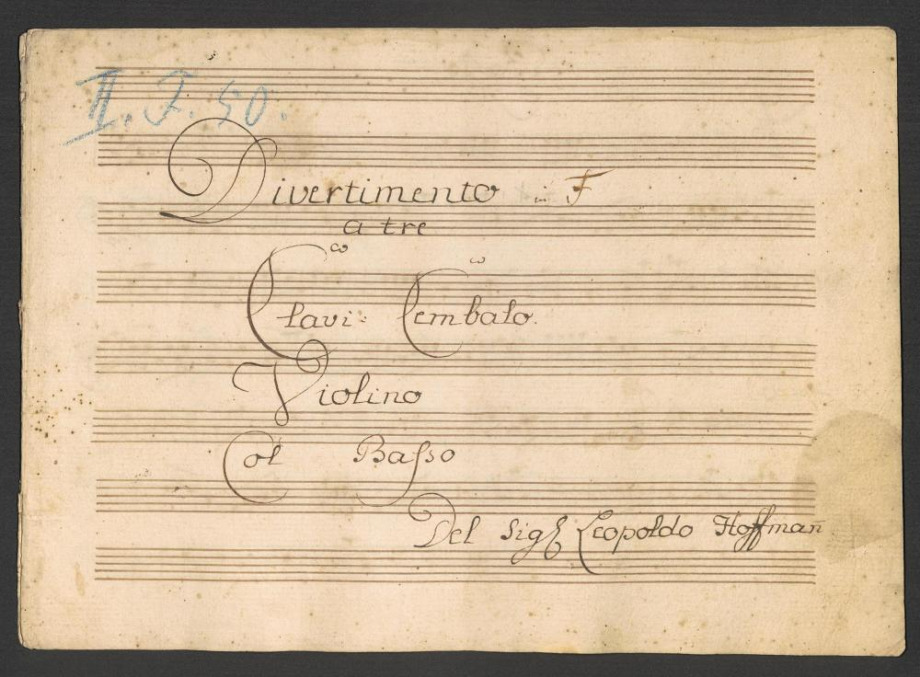 II. F. 50.
Divertimento in F
a tre
Clavi: Cembalo.
Violino
Col Baſso
Del Sigſ Leopoldo Hoffman̄